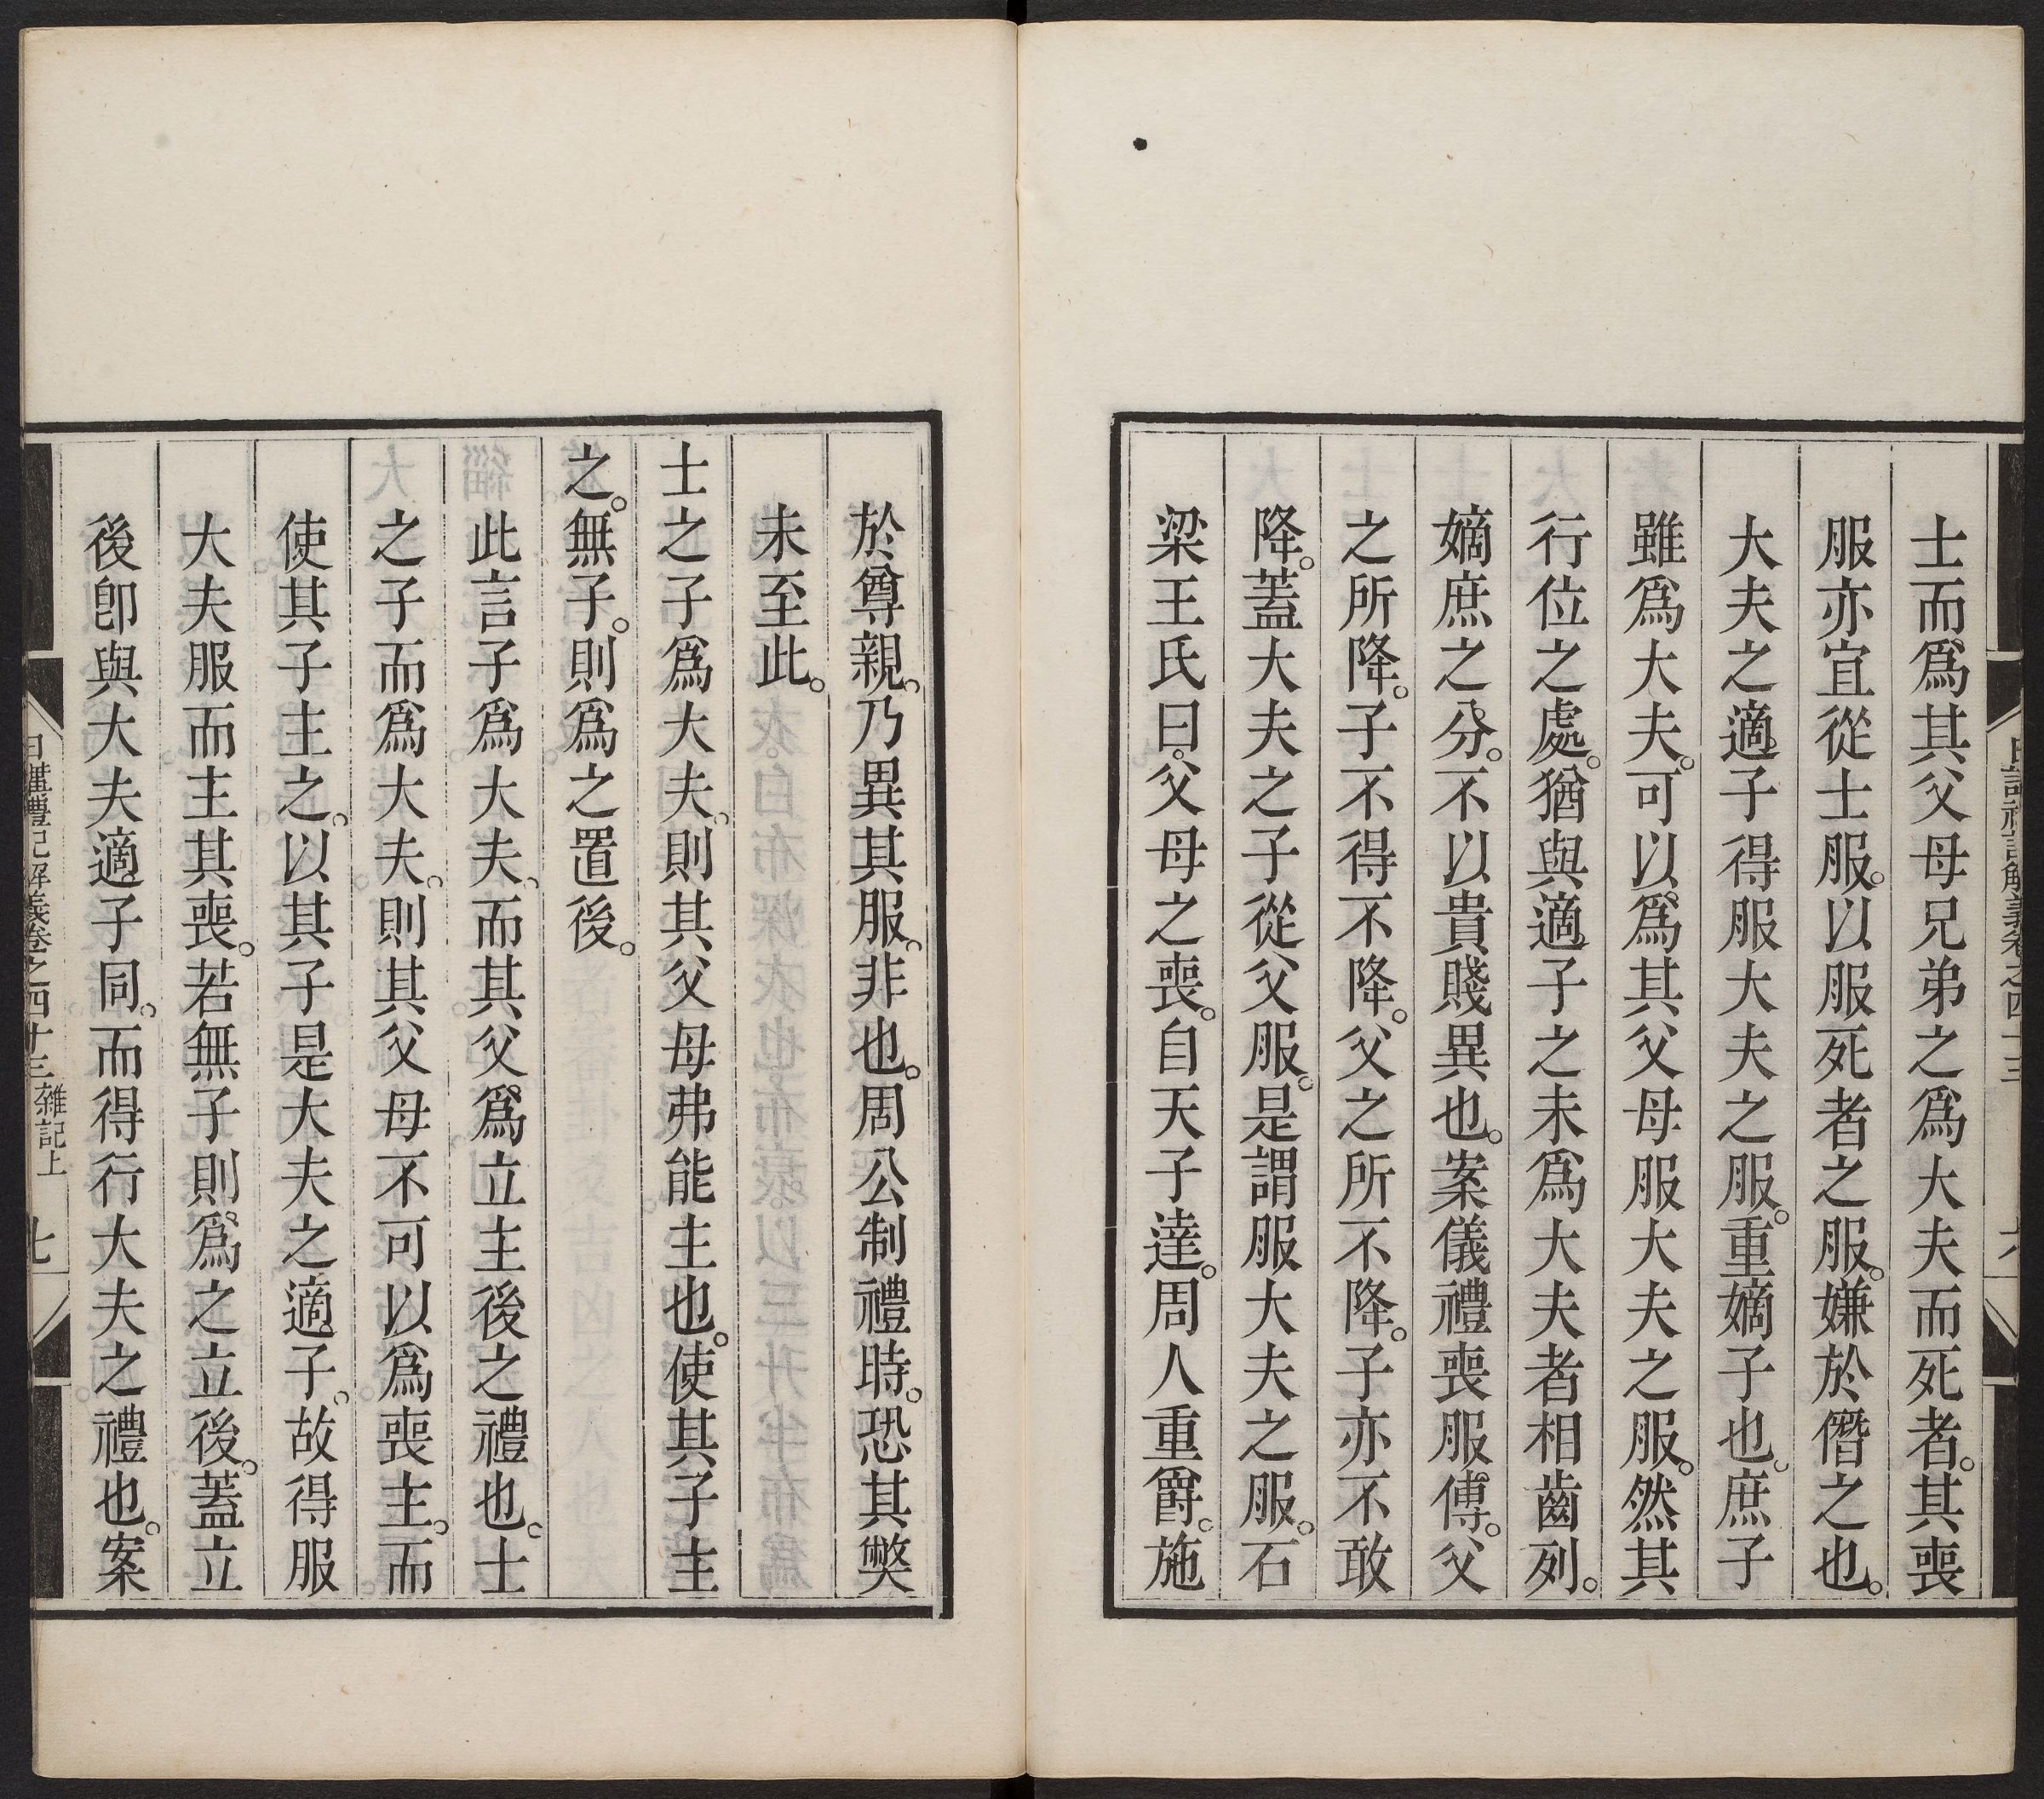 士而爲其父母兄弟之爲大夫而死者。其喪
服亦宜從士服。以服死者之服。嫌於僭之也。
大夫之適子得服大夫之服。重嫡子也。庶子
雖爲大夫。可以爲其父母服大夫之服。然其
行位之處。猶與適子之未爲大夫者相齒列。
嫡庶之分。不以貴賤異也。案儀禮喪服傳。父
之所降。子不得不降。父之所不降。子亦不敢
降。蓋大夫之子從父服。是謂服大夫之服。石
梁王氏曰。父母之喪。自天子達。周人重爵。施
於尊親。乃異其服。非也。周公制禮時。恐其獘
未至此。
士之子爲大夫。則其父母弗能主也。使其子主
之。無子。則爲之置後。
此言子爲大夫。而其父爲立主後之禮也。士
之子而爲大夫。則其父母不可以爲喪主。而
使其子主之。以其子是大夫之適子。故得服
大夫服而主其喪。若無子則爲之立後。蓋立
後卽與大夫適子同。而得行大夫之禮也。案
日講禮記解義卷之四十三 雜記上 七